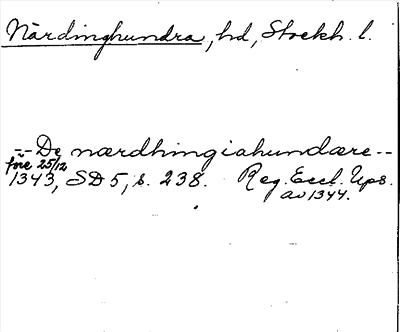 Närdinghundra, hd, Stockh. l.
-- De nærdhingiahundære --
före 25/12
1343, SD 5, s. 238. Reg. Eccl. Ups.
av 1344.